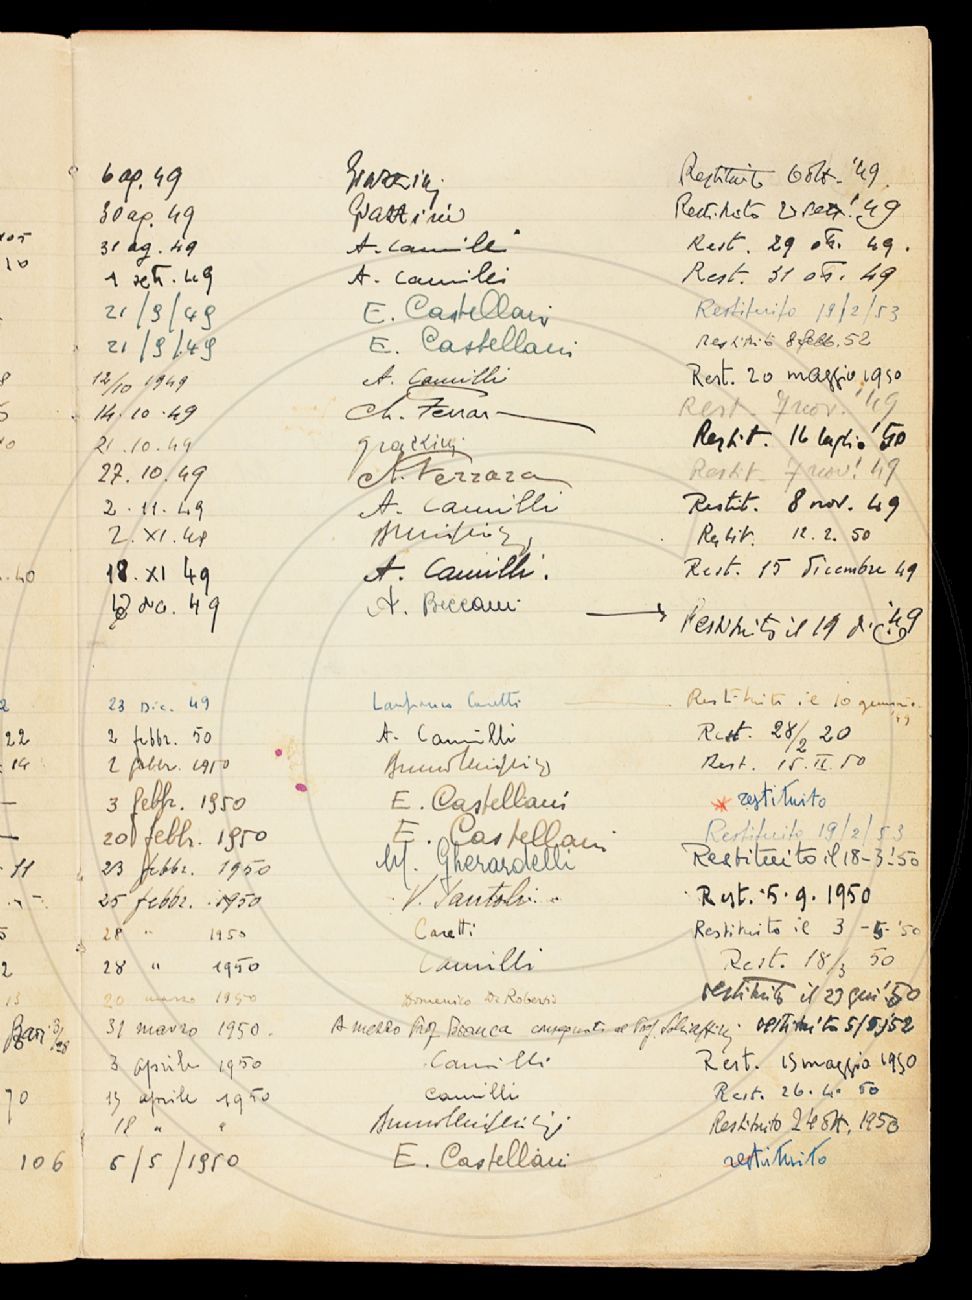 6 ag. 49 Grazzini Restituito 6 ott. '49
30 ag. 49 Grazzini Restituito sett. '49
105 31 ag. 49 A. Camilli Rest. 29 ott. 49.
10 1 sett. 49 A. Camilli Rest. 31 ott. 49
21/9/49 E. Castellani Restituito 19/2/53
21/9/49 E. Castellani restituito 8 febb. 52
12/10 1949 A. Camilli Rest. 20 maggio 1950
14.10.49 Ch. Ferrara Rest. 7 nov. '49
21.10.49 grazzini Restit. 16 luglio '50
27.10.49 A. Ferrara Restit. 7 nov. 49
2.11.49 A. Camilli Restit. 8 nov. 49
2.XI.49 Restit. 12.2.50
40 18.XI 49 A. Camilli. Rest. 15 dicembre 49
dic. 49 A. Beccani Restituito il 19 dic. '49
2 23 Dic. 49 Lanfranco Caretti Restituito il 10 gennaio
22 2 febbr. 50 A. Camilli Rest. 28/2
14 2 febbr. 1950 Rest. 15.II.50
— 3 febbr. 1950 E. Castellani restituito
— 20 febbr. 1950 E. Castellani Restituito 19/2/53
11 23 febbr. 1950 M. Gherardelli Restituito il 18-3-'50
25 febbr. 1950 V. Santoli Rest. 5.9.1950
5 28 " 1950 Caretti Restituito il 3-5-'50
2 28 " 1950 Camilli Rest. 18/3 50
13 20 marzo 1950 Domenico De Robertis restituito il
31 marzo 1950. A mezzo Prof. Branca Prof. Schiaffini restituito 5/5/52
3 aprile 1950 Camilli Rest. 15 maggio 1950
70 aprile 1950 Camilli Rest. 26.4.50
18 " " Restituito ott. 1950
106 5/5/1950 E. Castellani restituito